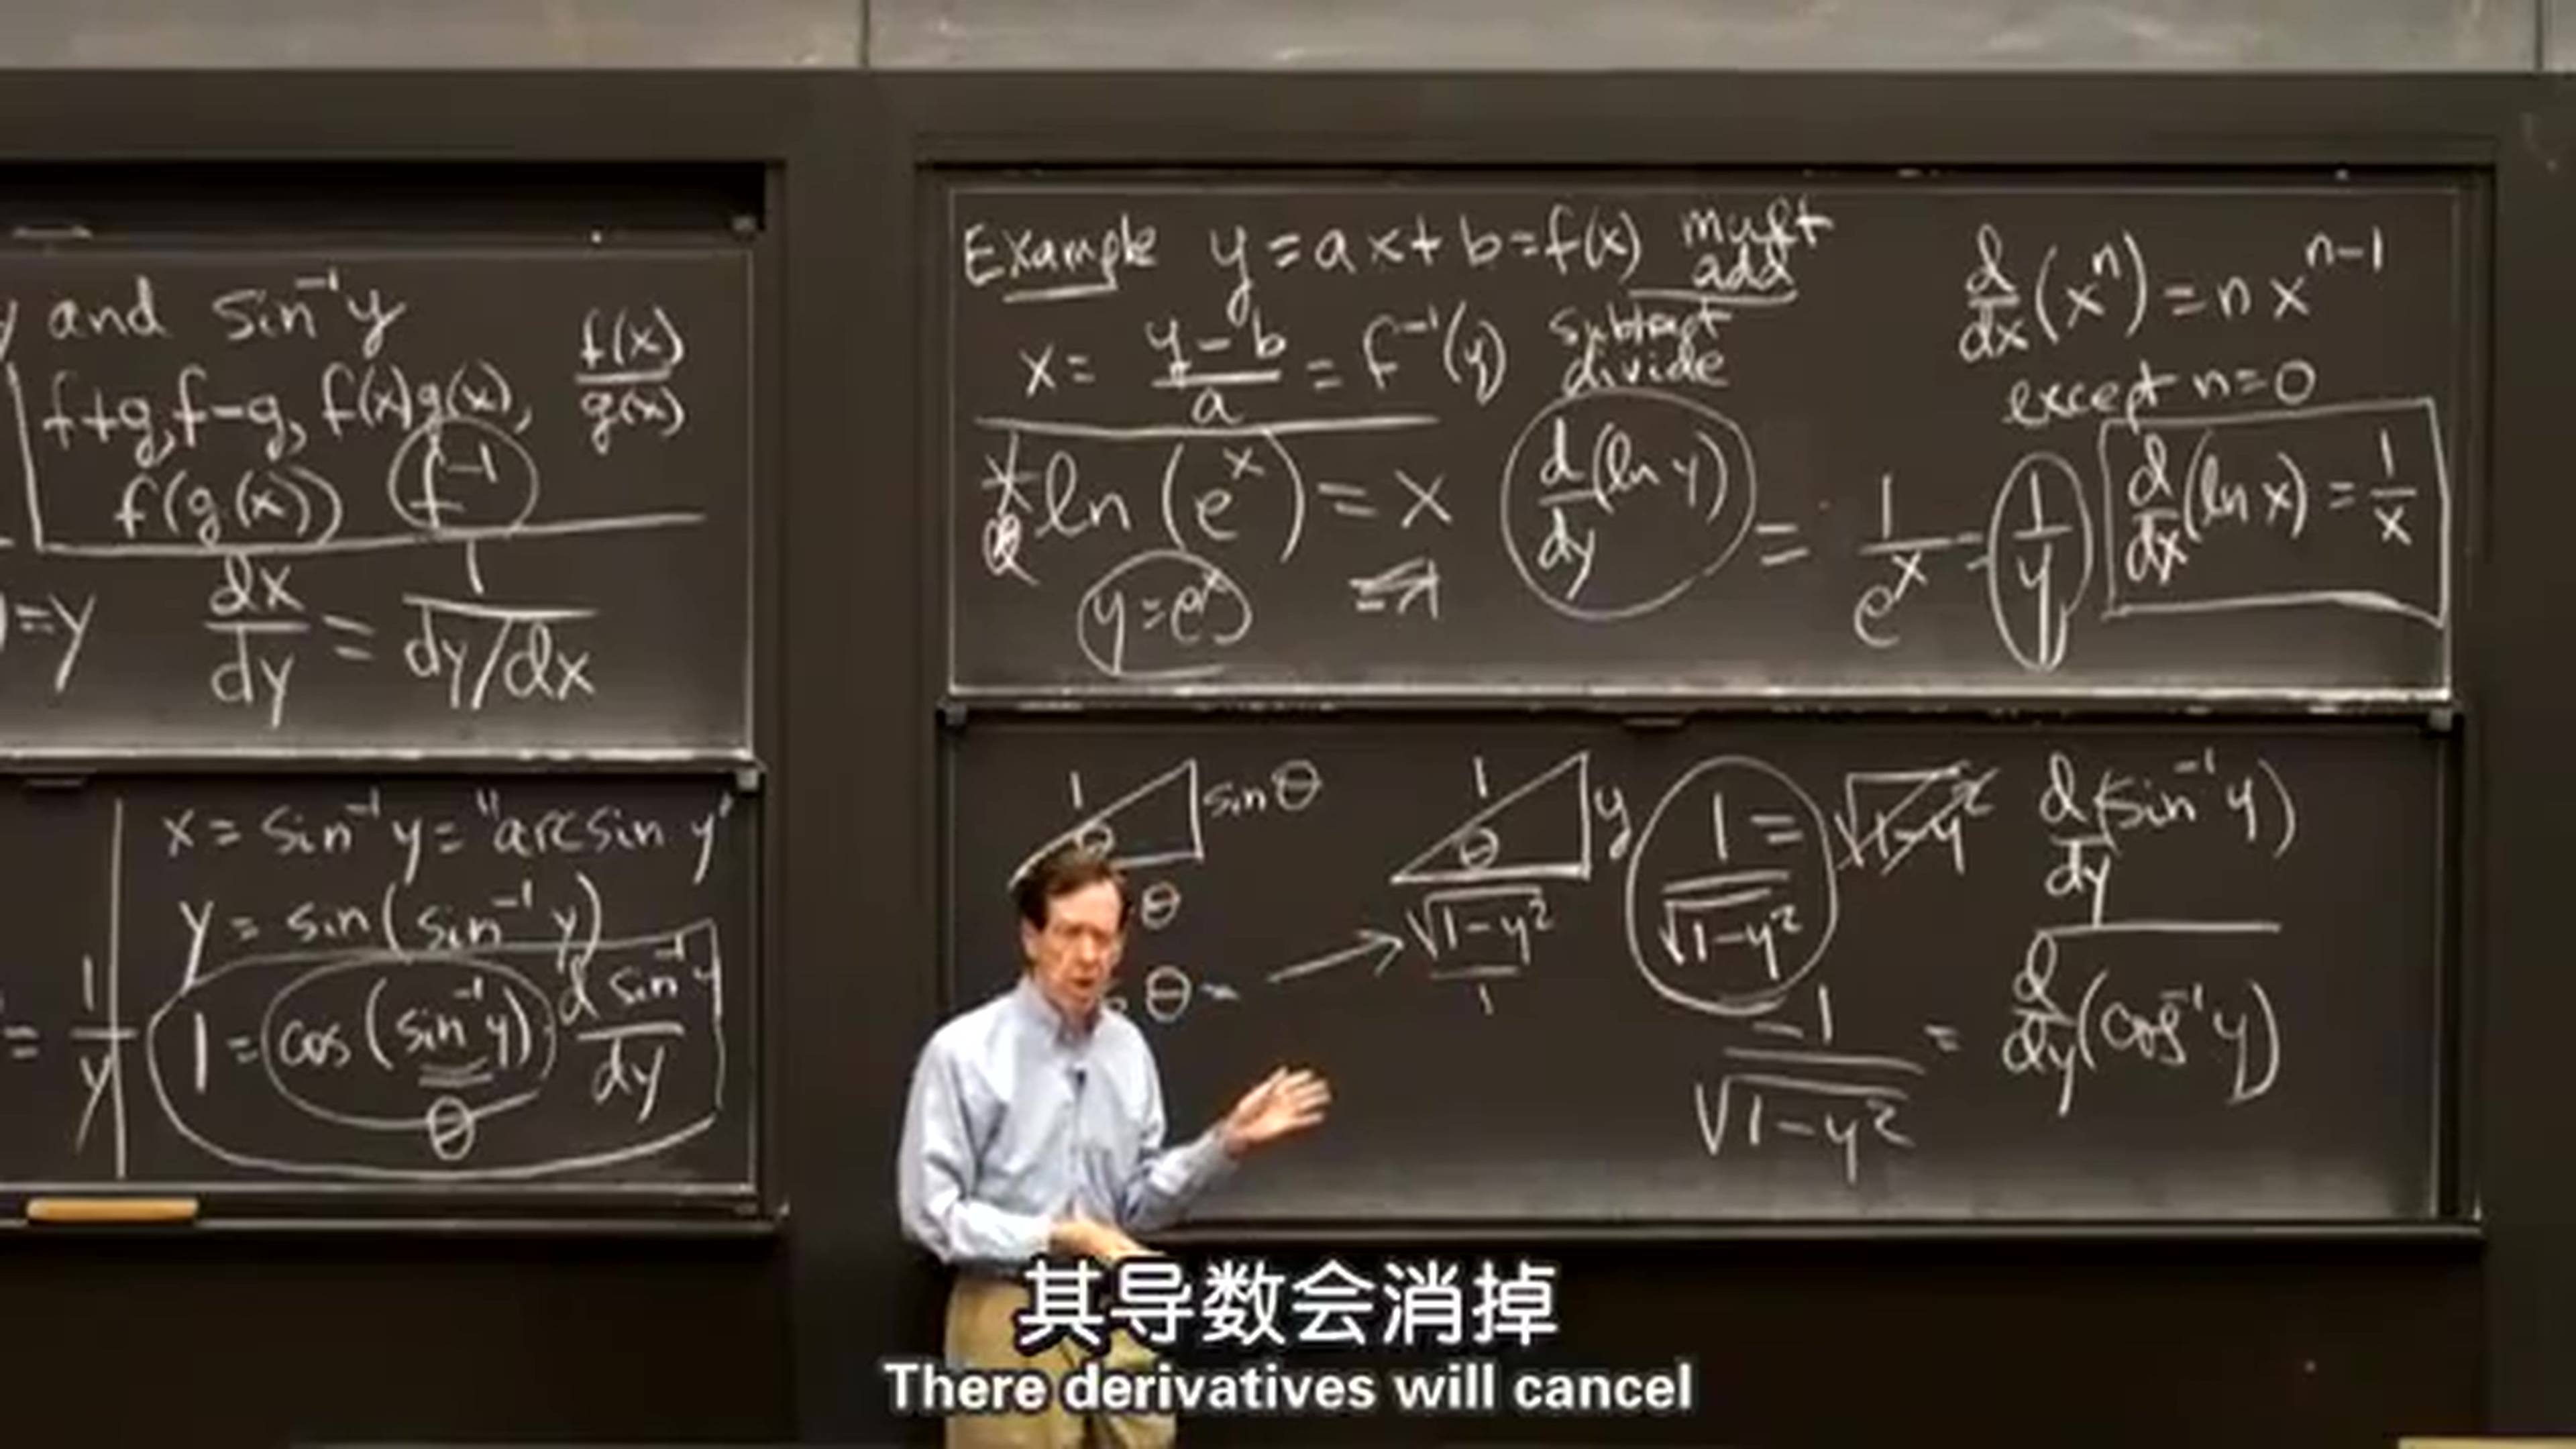 y and sin⁻¹y
f+g, f-g, f(x)g(x), f(x)/g(x)
f(g(x)) f⁻¹
)=y dx/dy = 1/(dy/dx)
= 1/y
x = sin⁻¹y = "arcsin y"
y = sin(sin⁻¹y)
1 = cos(sin⁻¹y) · d sin⁻¹y/dy
θ
Example y = ax + b = f(x) mult
add
x = (y-b)/a = f⁻¹(y) subtract
divide
ln(eˣ) = x d/dy(ln y) = 1/eˣ = 1/y
y = eˣ
d/dx(xⁿ) = n xⁿ⁻¹
except n=0
d/dx(ln x) = 1/x
1 sin θ
θ
θ
θ =
1 y
θ
√(1-y²)/1
1/√(1-y²) = √(1-y²) d/dy(sin⁻¹y)
-1/√(1-y²) = d/dy(cos⁻¹y)
其导数会消掉
There derivatives will cancel